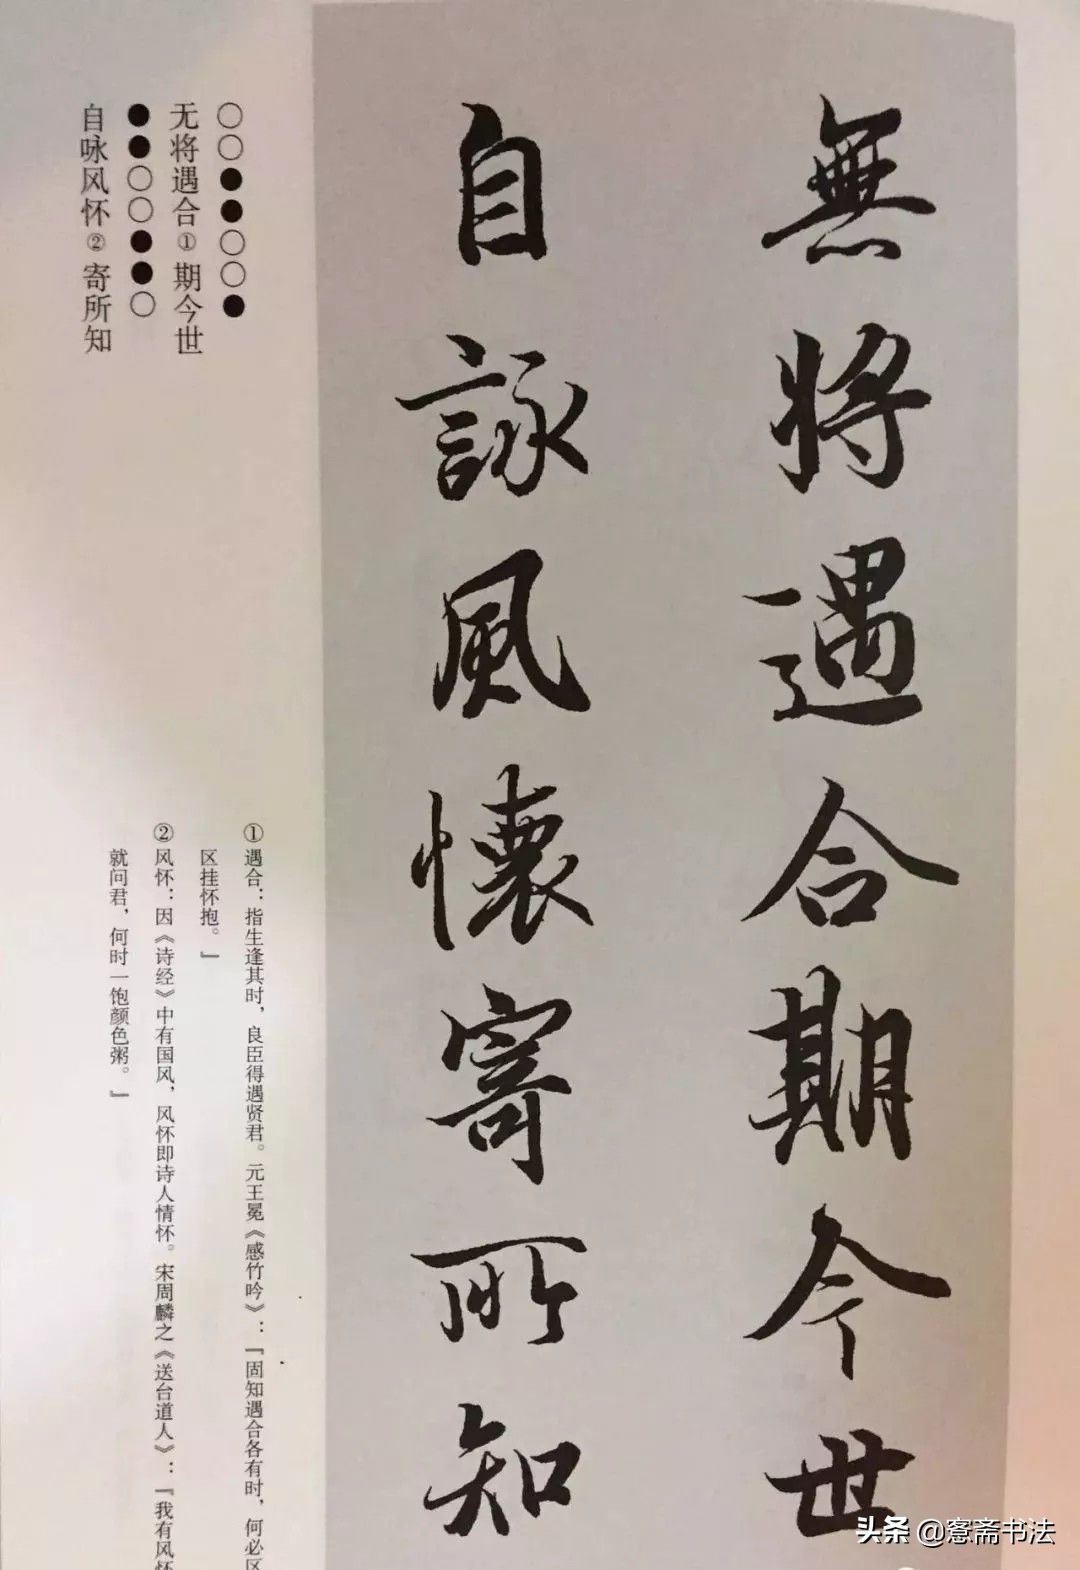 無將遇合期今世
自詠風懷寄所知
○○●●○○●
无将遇合①期今世
●●○○●●○
自咏风怀②寄所知
①遇合：指生逢其时，良臣得遇贤君。元王冕《感竹吟》：『固知遇合各有时，何必区
区挂怀抱。』
②风怀：因《诗经》中有国风，风怀即诗人情怀。宋周麟之《送台道人》：『我有风怀
就问君，何时一饱颜色粥。』
头条 @窓斋书法